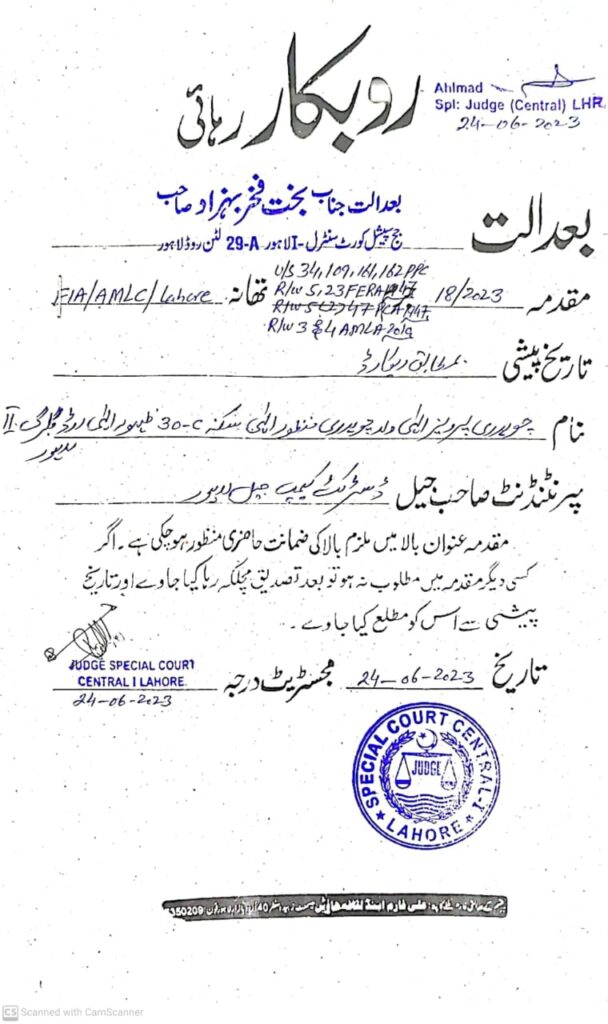 روبکار رہائی
Ahlmad
Spl: Judge (Central) LHR
24-06-2023
بعدالت
بعدالت جناب بخت فخر بہزاد صاحب
جج سپیشل کورٹ سنٹرل -I لاہور 29-A لٹن روڈ لاہور
مقدمہ 18/2023
U/S 34,109,161,162 PPC
R/W 5,23 FERA 1947
R/W 5(2) 47 PCA 1947
R/W 3 & 4 AMLA 2010
تھانہ FIA/AMLC/Lahore
تاریخ پیشی بمطابق ریکارڈ
بنام چوہدری پرویز الٰہی ولد چوہدری منظور الٰہی سکنہ 30-C ظہور الٰہی روڈ گلبرگ II
لاہور
سپرنٹنڈنٹ صاحب جیل ڈسٹرکٹ کیمپ جیل لاہور
مقدمہ عنوان بالا میں ملزم بالا کی ضمانت حاضری منظور ہو چکی ہے ۔ اگر
کسی دیگر مقدمہ میں مطلوب نہ ہو تو بعد تصدیق مچلکہ رہا کیا جاوے اور تاریخ
پیشی سے اس کو مطلع کیا جاوے ۔
تاریخ 24-06-2023 مجسٹریٹ درجہ
JUDGE SPECIAL COURT
CENTRAL I LAHORE
24-06-2023
SPECIAL COURT CENTRAL-I
JUDGE
LAHORE
علی فارم اینڈ لفافہ ہاؤس
CS Scanned with CamScanner